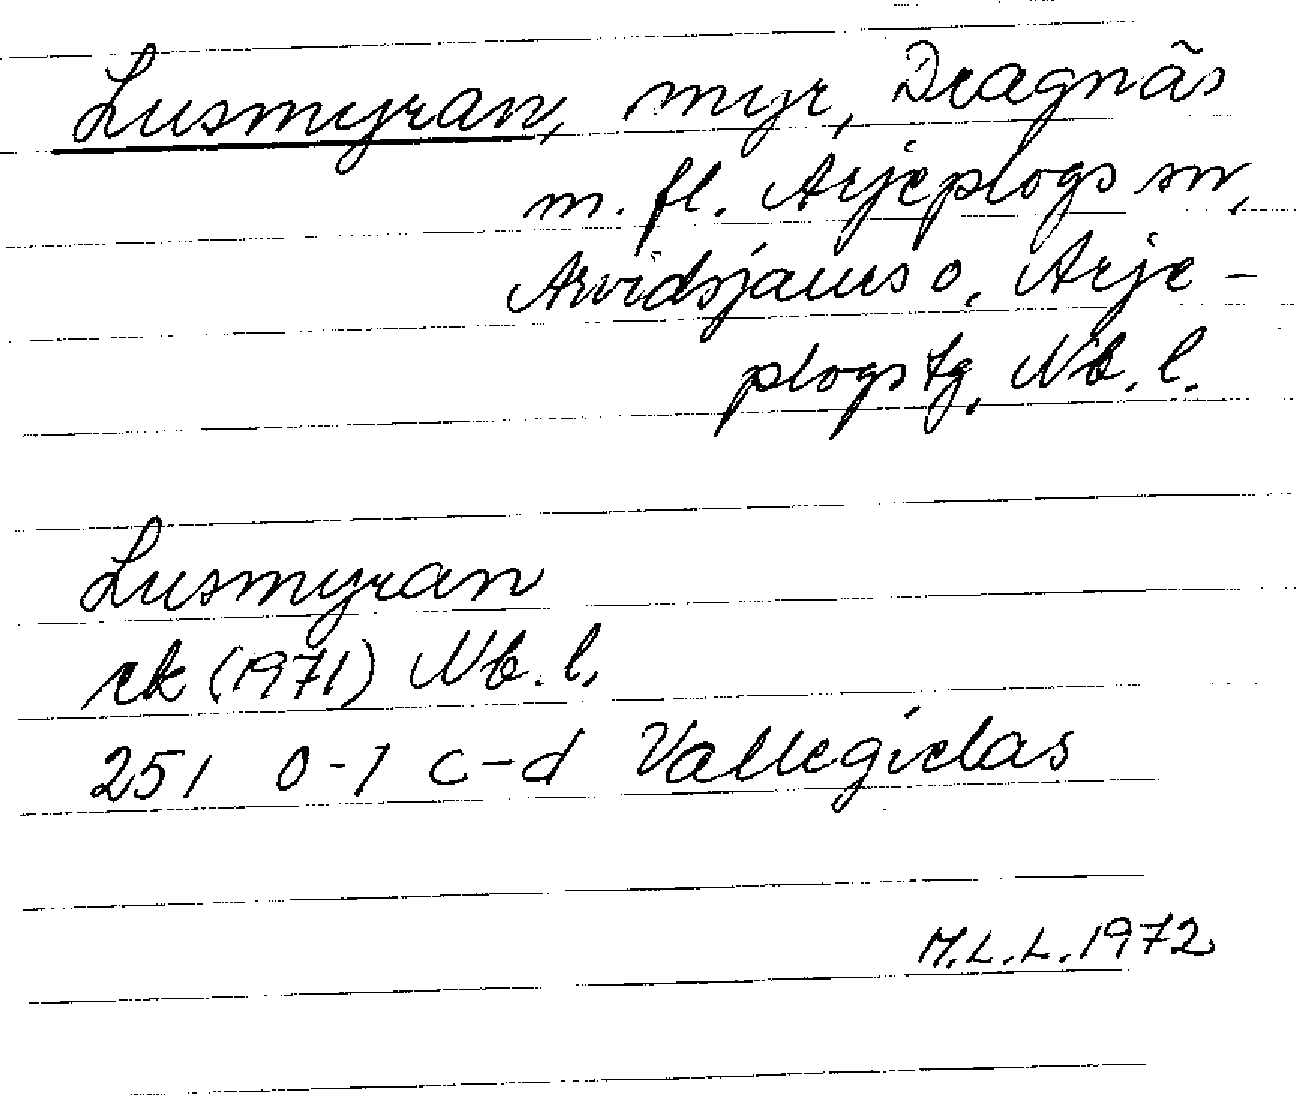 Lusmyran, myr, Dragnäs
m. fl. Arjeplogs sn,
Arvidsjaurs o, Arje-
plogs tg, Nb. l.
Lusmyran
ek (1971) Nb. l.
251 0-1 c-d Vallegielas
M.L.L. 1972